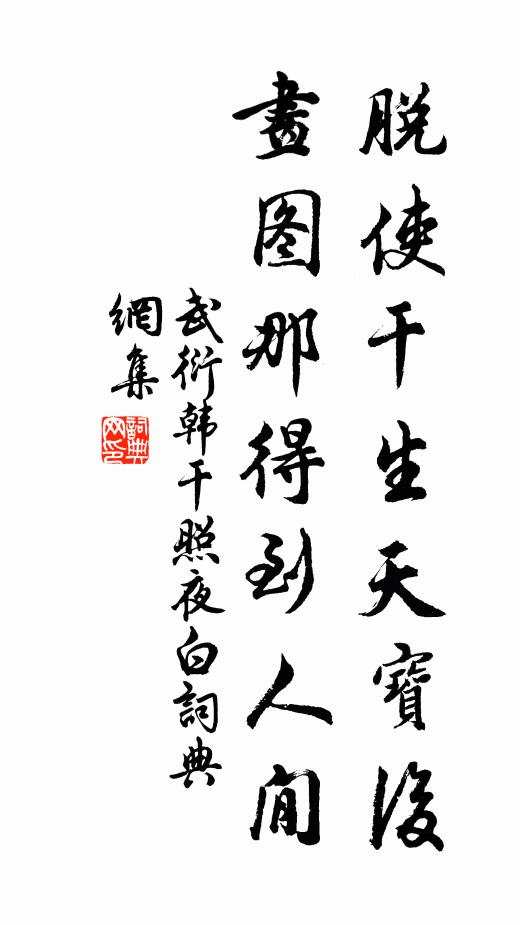 脫使干生天寶後
畫图那得到人间
武衍韩干照夜白詞典
網集
詞典
网印